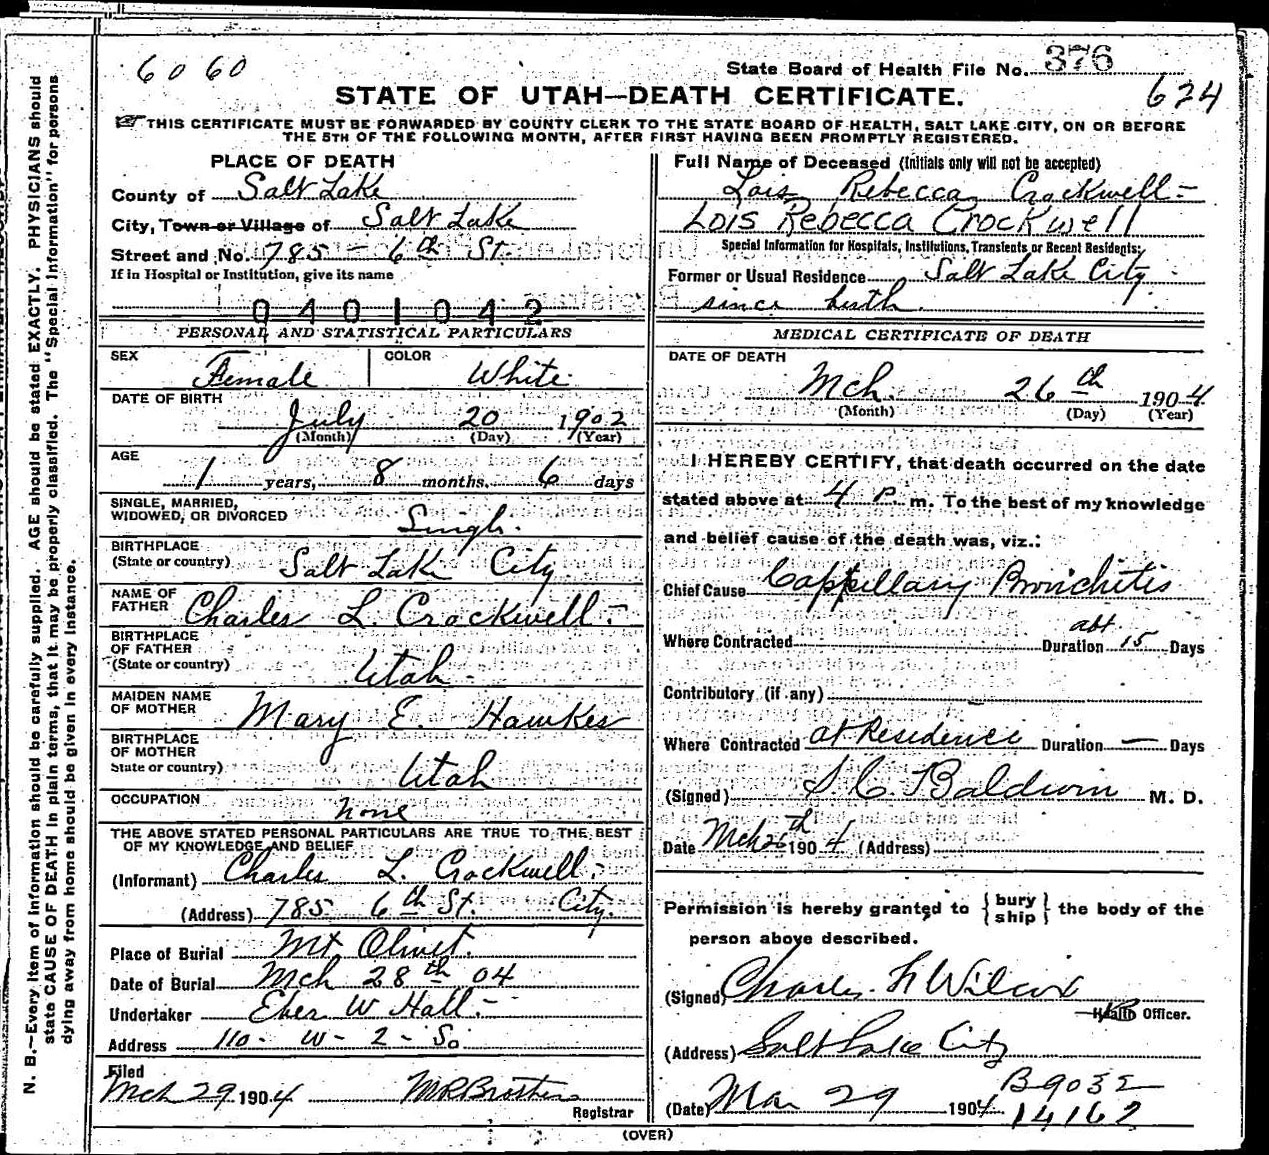 6060
State Board of Health File No. 376
624
STATE OF UTAH—DEATH CERTIFICATE.
THIS CERTIFICATE MUST BE FORWARDED BY COUNTY CLERK TO THE STATE BOARD OF HEALTH, SALT LAKE CITY, ON OR BEFORE
THE 5TH OF THE FOLLOWING MONTH, AFTER FIRST HAVING BEEN PROMPTLY REGISTERED.
PLACE OF DEATH
County of Salt Lake
City, Town or Village of Salt Lake
Street and No. 785 - 6th St.
If in Hospital or Institution, give its name
0401042
PERSONAL AND STATISTICAL PARTICULARS
SEX Female COLOR White
DATE OF BIRTH
July 20 1902
(Month) (Day) (Year)
AGE
1 years, 8 months, 6 days
SINGLE, MARRIED,
WIDOWED, OR DIVORCED Single.
BIRTHPLACE
(State or country) Salt Lake City
NAME OF
FATHER Charles L. Crockwell -
BIRTHPLACE
OF FATHER
(State or country) Utah.
MAIDEN NAME
OF MOTHER Mary E. Hawkes
BIRTHPLACE
OF MOTHER
State or country) Utah
OCCUPATION None
THE ABOVE STATED PERSONAL PARTICULARS ARE TRUE TO THE BEST
OF MY KNOWLEDGE AND BELIEF
(Informant) Charles L. Crockwell -
(Address) 785 6th St. City.
Place of Burial Mt Olivet.
Date of Burial Mch 28th 04
Undertaker Eber W Hall -
Address 110 - W - 2 - So
Filed
Mch 29 1904
Registrar
Full Name of Deceased (Initials only will not be accepted)
Lois Rebecca Crockwell -
Lois Rebecca Crockwell
Special Information for Hospitals, Institutions, Transients or Recent Residents:
Former or Usual Residence Salt Lake City
since birth.
MEDICAL CERTIFICATE OF DEATH
DATE OF DEATH
Mch. 26th 1904
(Month) (Day) (Year)
I HEREBY CERTIFY, that death occurred on the date
stated above at 4 P. m. To the best of my knowledge
and belief cause of the death was, viz.:
Chief Cause Cappillary Bronchitis
Where Contracted Duration abt. 15 Days
Contributory (if any)
Where Contracted at Residence Duration — Days
(Signed) S. C. Baldwin M. D.
Date Mch 26th 1904 (Address)
Permission is hereby granted to {bury ship} the body of the
person above described.
(Signed) Charles F. Wilcox
Health Officer.
(Address) Salt Lake City
(Date) Mar 29 1904
B9032
14162
(OVER)
N. B.—Every item of information should be carefully supplied. AGE should be stated EXACTLY. PHYSICIANS should
state CAUSE OF DEATH in plain terms, that it may be properly classified. The "Special Information" for persons
dying away from home should be given in every instance.